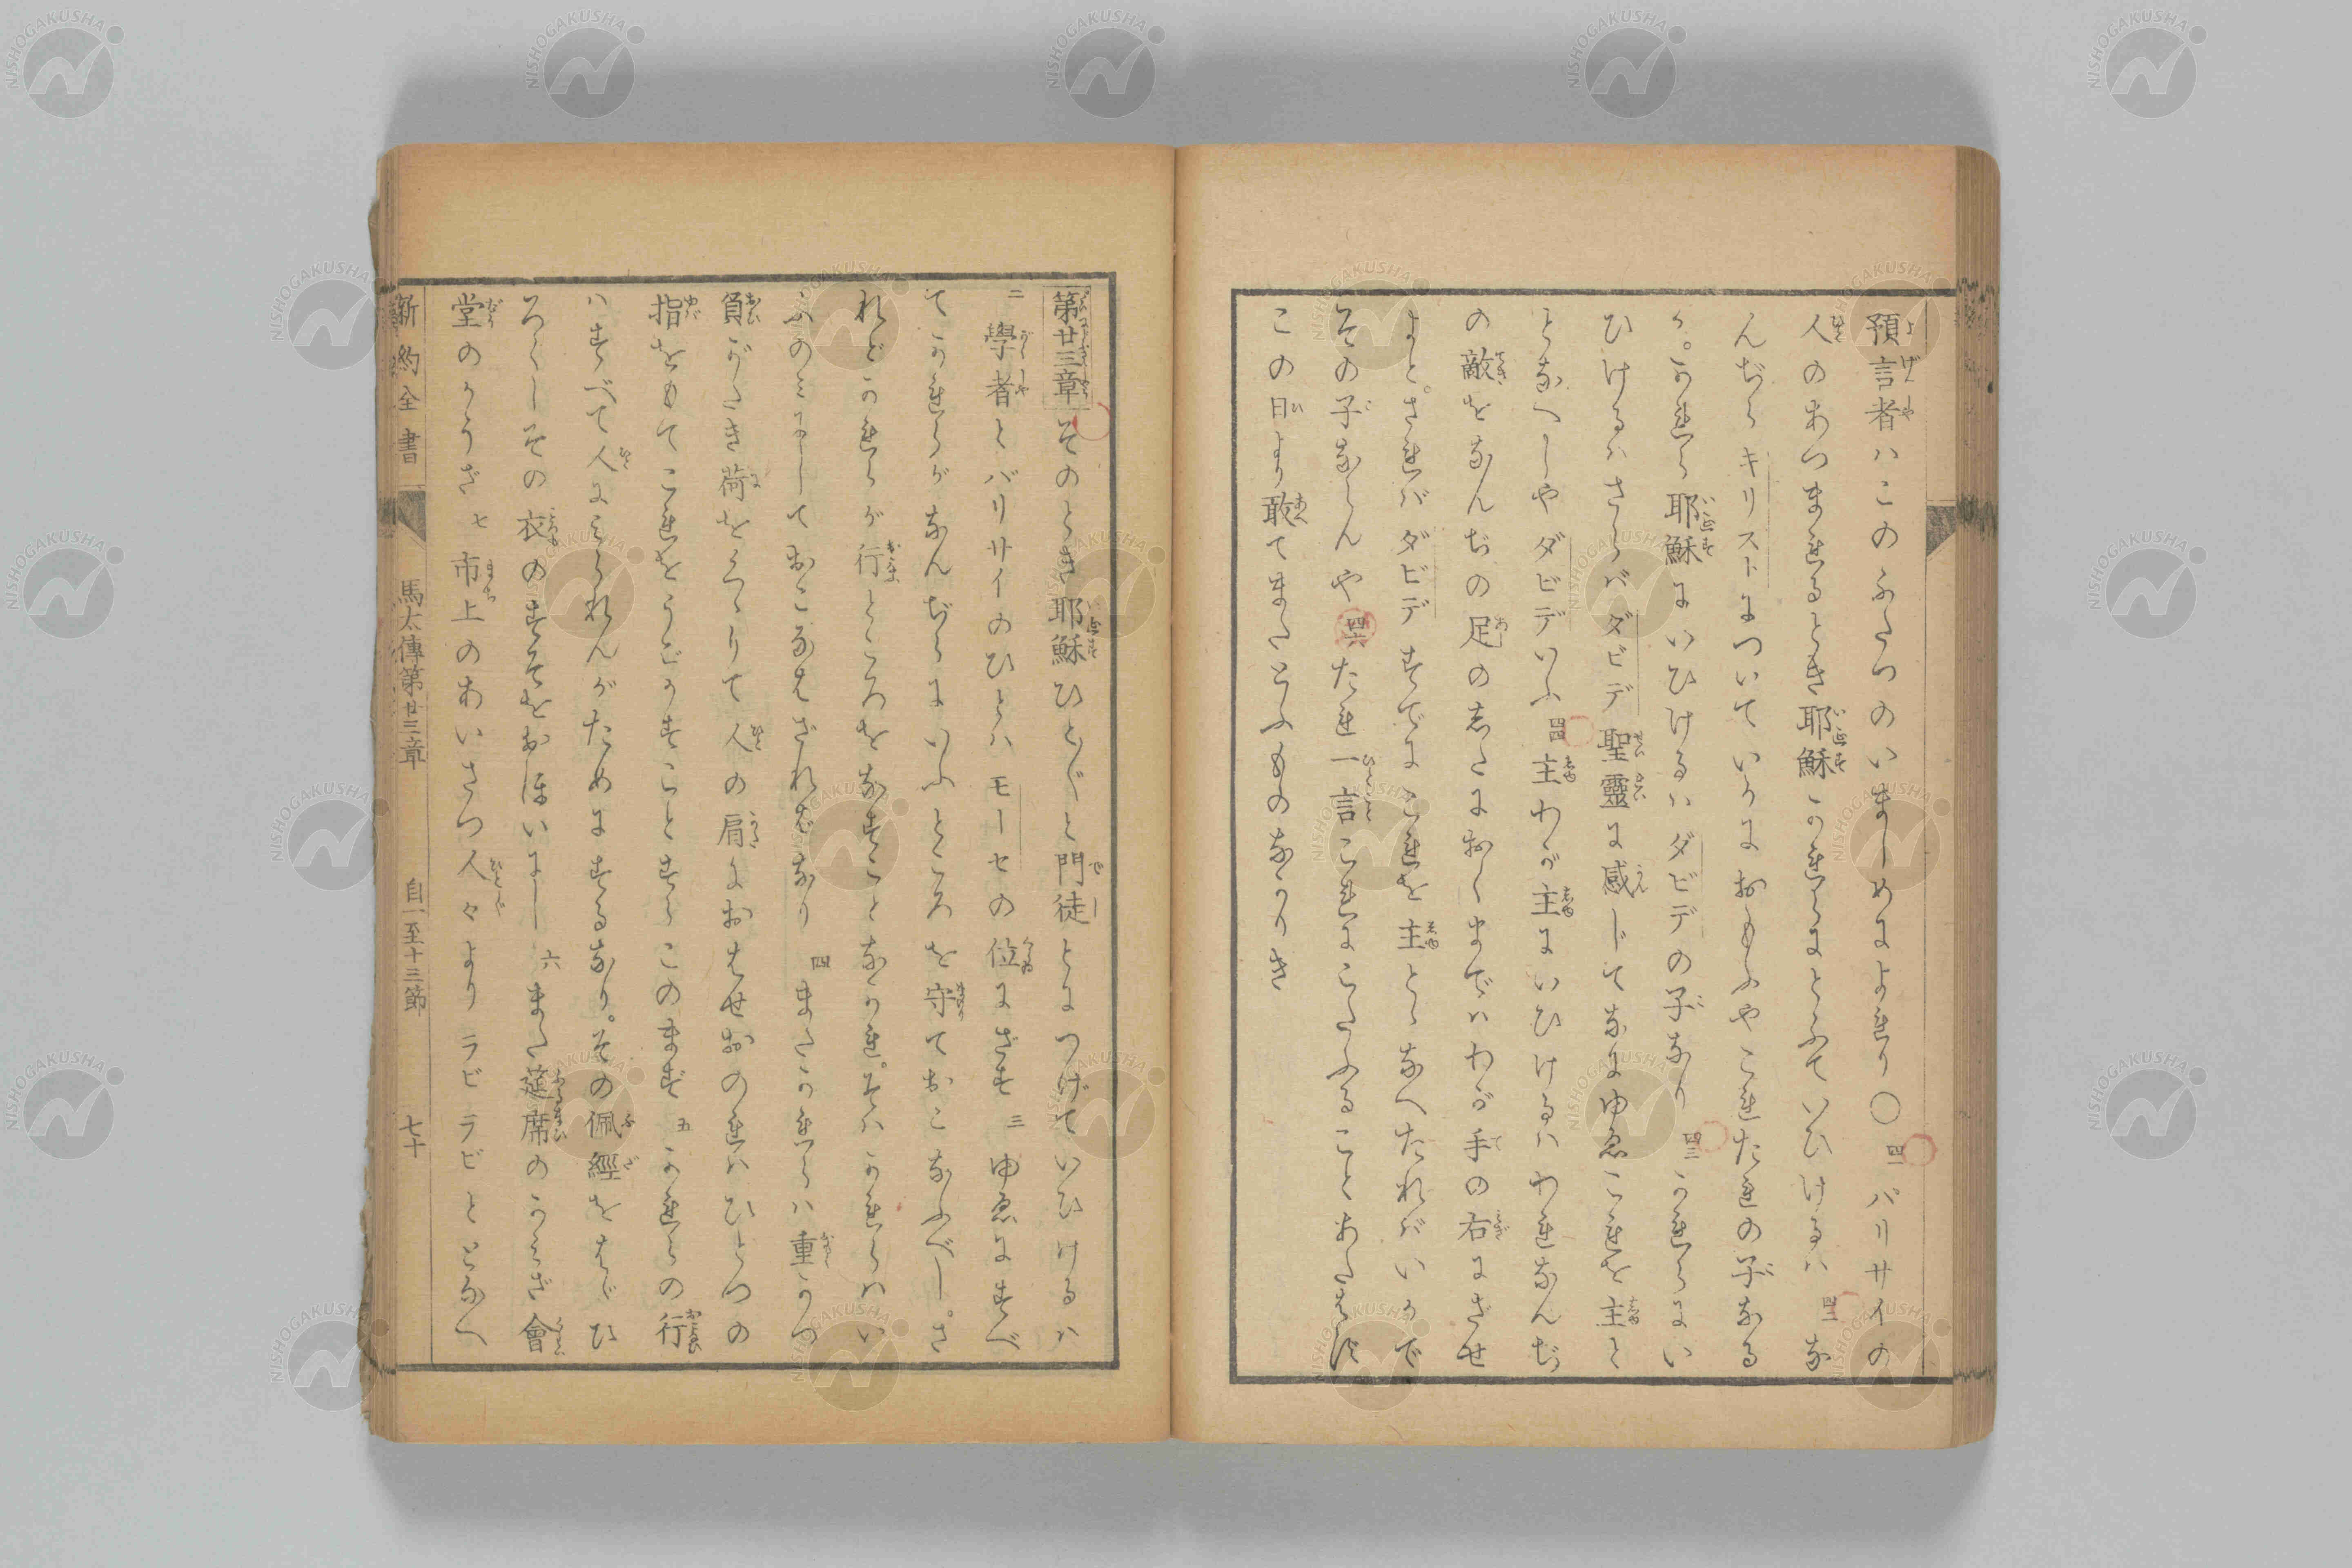 預言者ハこのふたつのいましめによれり〇四一パリサイの
人のあつまれるとき耶穌かれらにとふていひけるハ四二な
んぢらキリストについていかにおもふやこれたれの子なる
か。かれら耶穌にいひけるハダビデの子なり四三かれらにい
ひけるハさらバダビデ聖靈に感じてなにゆゑこれを主と
となへしやダビデいふ四四主わが主にいひけるハわれなんぢ
の敵をなんぢの足のあしたにおくまでハわが手の右にざせ
よと。さればダビデすでにこれを主ととなへたればいかで
その子ならんや四六たれ一言これにこたふることあたはず
この日より敢てまたとふものなかりき
第廿三章そのとき耶穌ひとびとと門徒とにつげていひけるハ
二學者とパリサイのひとハモーセの位にざす三ゆゑにすべ
てかれらがなんぢらにいふところを守ておこなふべし。さ
れどかれらが行ところをなすことなかれ。そハかれらハい
ふのミにしておこなはざればなり四またかれらハ重かつ
負がたき荷をくゝりて人の肩におはせおのれハひとつの
指をもてこれをうごかすことすらこのまず五かれらの行
ハすべて人にみられんがためにするなり。その佩經をはゞひ
ろくしその衣のすそをおほいにし六また筵席のかミざ會
堂のかうざ七市上のあいさつ人々よりラビラビととなへ
新約全書 馬太傳第廿三章 自一至十三節 七十
NISHOGAKUSHA